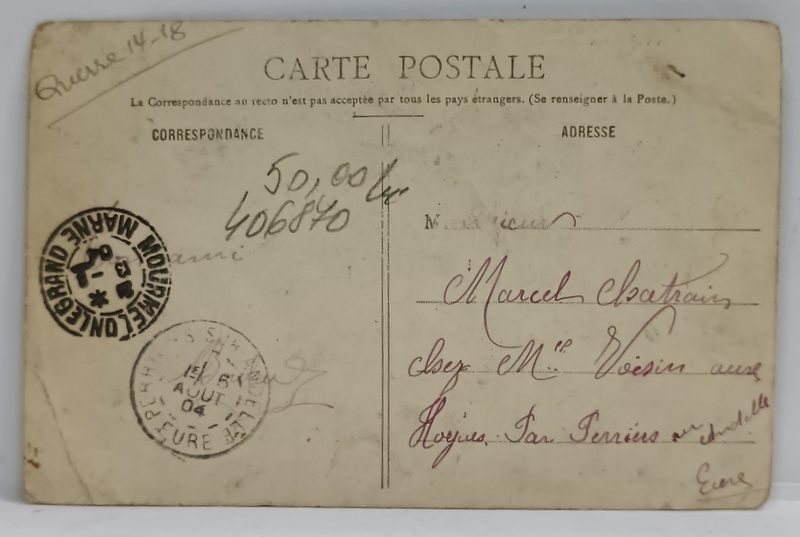 Guerre 14-18
CARTE POSTALE
La Correspondance au recto n'est pas acceptée par tous les pays étrangers. (Se renseigner à la Poste.)
CORRESPONDANCE
ADRESSE
50,00
406870
Monsieur
MOURMELON LE GRAND MARNE
Marcel Chatrain
PERRIERS SUR ANDELLE
AOUT
04
EURE
Chez Mer Voisin aux
Hogues Par Perriers sur Andelle
Eure